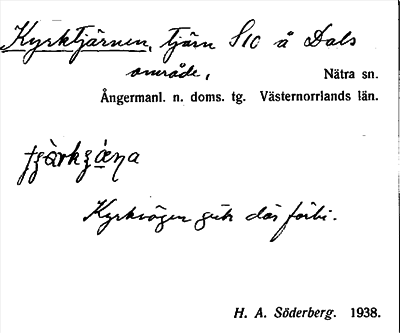 Kyrktjärnen, tjärn S10 å Dals
område, Nätra sn.
Ångermanl. n. doms. tg. Västernorrlands län.
Kyrkvägen gick där förbi.
H. A. Söderberg. 1938.